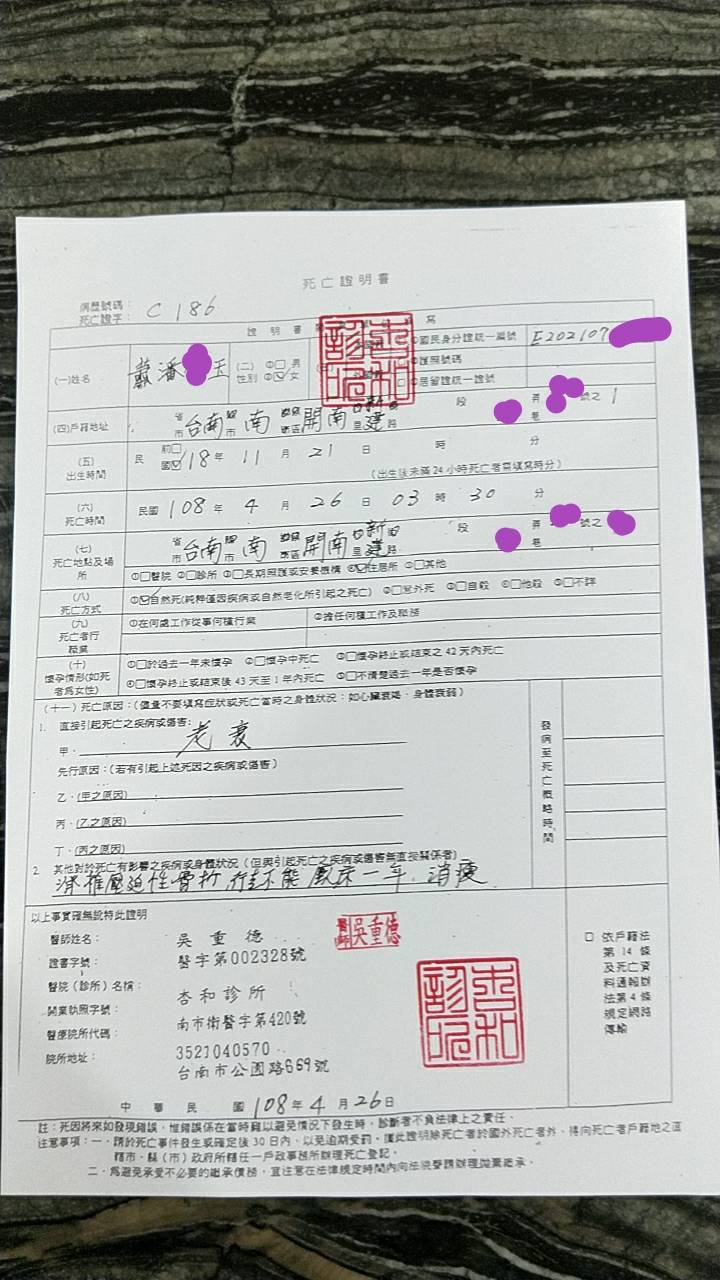 死亡證明書
病歷號碼：
死亡證字： C 186
證明書
(一)姓名 蕭潘 玉 (二)性別 ①□男 ②☑女 ①國民身分證統一編號 E202107
□②護照號碼
□③居留證統一證號
(四)戶籍地址 省市 台南 縣市 南 區 開南 里 建 路 段 巷 弄 號之1
(五)出生時間 民 前□ 國☑ 18年 11月 21日 時 分
(出生後未滿24小時死亡者需填寫時分)
(六)死亡時間 民國 108年 4月 26日 03時 30分
(七)死亡地點及場所 省市 台南 縣市 南 區 開南 里 建 路 段 巷 弄 號之
①□醫院 ②□診所 ③□長期照護或安養機構 ④☑住居所 ⑤□其他
(八)死亡方式 ①☑自然死(純粹僅因疾病或自然老化所引起之死亡) ②□意外死 ③□自殺 ④□他殺 ⑤□不詳
(九)死亡者行職業 ①在何處工作從事何種行業 ②擔任何種工作及職務
(十)懷孕情形(如死者為女性) ①□於過去一年未懷孕 ②□懷孕中死亡 ③□懷孕終止或結束之42天內死亡
④□懷孕終止或結束後43天至1年內死亡 ⑤□不清楚過去一年是否懷孕
(十一)死亡原因：(儘量不要填寫症狀或死亡當時之身體狀況：如心臟衰竭、身體衰弱)
1. 直接引起死亡之疾病或傷害：
甲． 老衰
先行原因：(若有引起上述死因之疾病或傷害)
乙．(甲之原因)
丙．(乙之原因)
丁．(丙之原因)
發病至死亡概略時間
2. 其他對於死亡有影響之疾病或身體狀況（但與引起死亡之疾病或傷害無直接關係者）
脊椎壓迫性骨折, 行走不能 臥床一年. 消瘦
以上事實確無訛特此證明
醫師姓名： 吳重德
證書字號： 醫字第002328號
醫院（診所）名稱： 杏和診所
開業執照字號： 南市衛醫字第420號
醫療院所代碼： 3521040570
院所地址： 台南市公園路669號
醫師吳重德
杏和診所
□ 依戶籍法第14條及死亡資料通報辦法第4條規定網路傳輸
中華民國108年4月26日
註：死因將來如發現錯誤，惟錯誤係在當時難以避免情況下發生時，診斷者不負法律上之責任。
注意事項：一、請於死亡事件發生或確定後30日內，以免逾期受罰。僅此證明除死亡者於國外死亡者外，得向死亡者戶籍地之直
轄市、縣（市）政府所轄任一戶政事務所辦理死亡登記。
二、為避免承受不必要的繼承債務，宜注意在法律規定時間內向法院聲請辦理拋棄繼承。